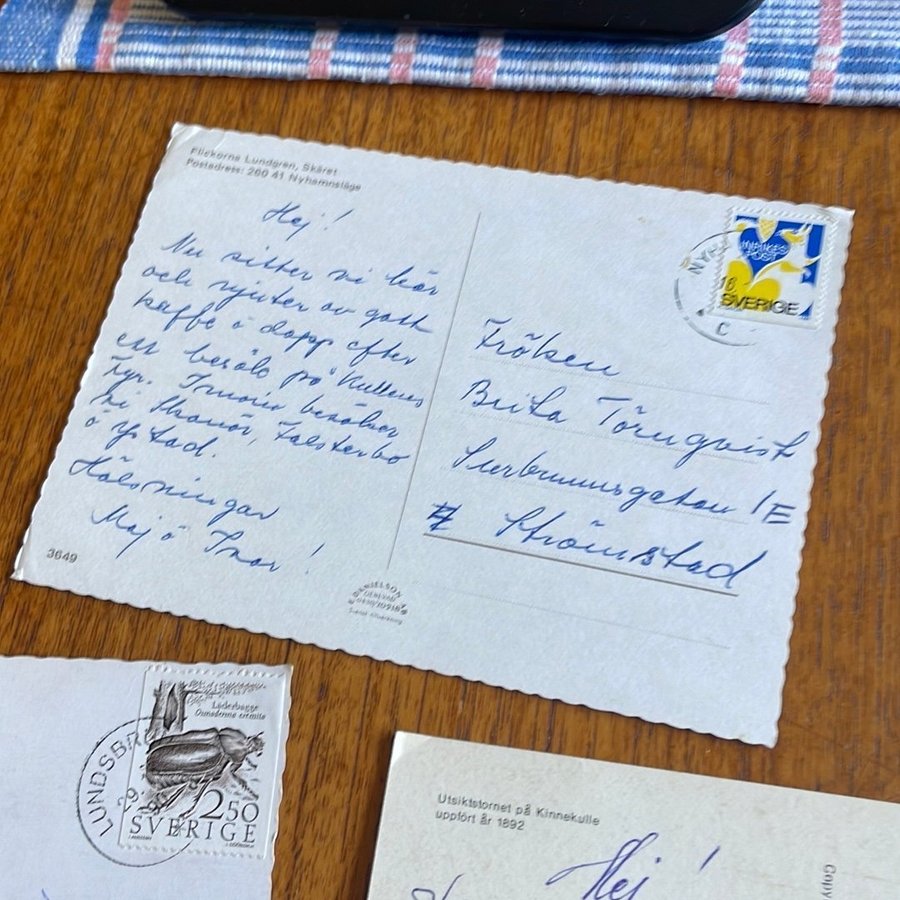 Flickorna Lundgren, Skäret
Postadress: 260 41 Nyhamnsläge
Hej!
Nu sitter vi här
och njuter av gott
kaffe o dopp efter
ett besök på Kullens
fyr. Imorn besöker
vi Skanör, Falsterbo
o Ystad.
Hälsningar
Maj o Ivar!
3649
INRIKES
POST
SVERIGE
NYH
C
Fröken
Brita Törnqvist
Surbrunnsgatan 1E
Strömstad
DANIELSON
Läderbagge
Osmoderma eremita
2.50
SVERIGE
LUNDSBR
29
Utsiktstornet på Kinnekulle
uppfört år 1892
Hej!
Copy